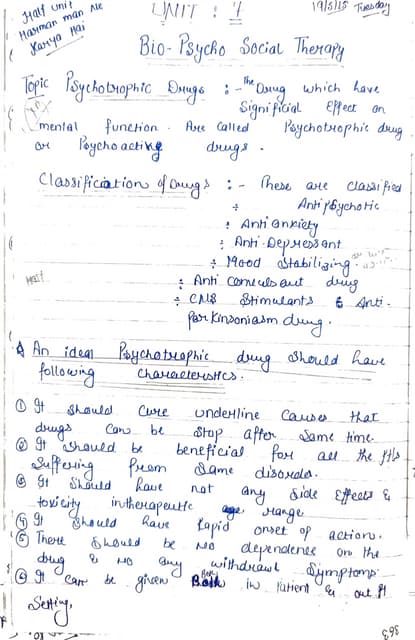 Half Unit
Harman man Ne
Karya Hai
UNIT : 1
19/5/15 Tuesday
Bio-Psycho Social Therapy
Topic Psychotrophic Drugs :- The Drug which have
Significial Effect on
mental function. Are Called Psychotrophic drug
or Psychoacting drugs.
Classification of Drugs :- These are Classified
÷ Antipsychotic
÷ Anti anxiety
÷ Anti-Depressant
÷ Mood Stabilizing
Half
÷ Anti Convulsant drug
÷ CNS Stimulants & Anti-
parkinsoniasm drug.
An ideal Psychotrophic drug Should have
following Characteristics.
① It Should Cure underline Causes that
drugs Can be Stop after Some time.
② It Should be beneficial for all the pts
Suffering from Same disorder.
③ It Should have not any Side Effects &
toxicity intherapeutic range
④ It Should have Rapid onset of action.
⑤ There Should be no dependence on the
drug & no any withdrawl Symptoms.
⑥ It Can be given Both in Patient & out Pt
Setting.
363